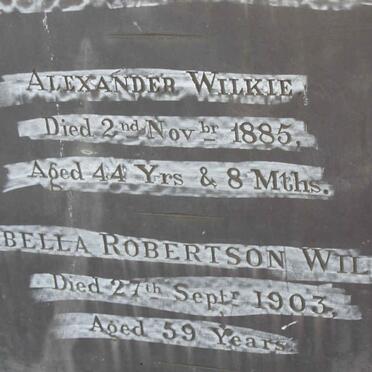 ALEXANDER WILKIE
Died 2nd Novbr 1885,
Aged 44 Yrs & 8 Mths.
BELLA ROBERTSON WIL
Died 27th Septr 1903,
Aged 59 Years